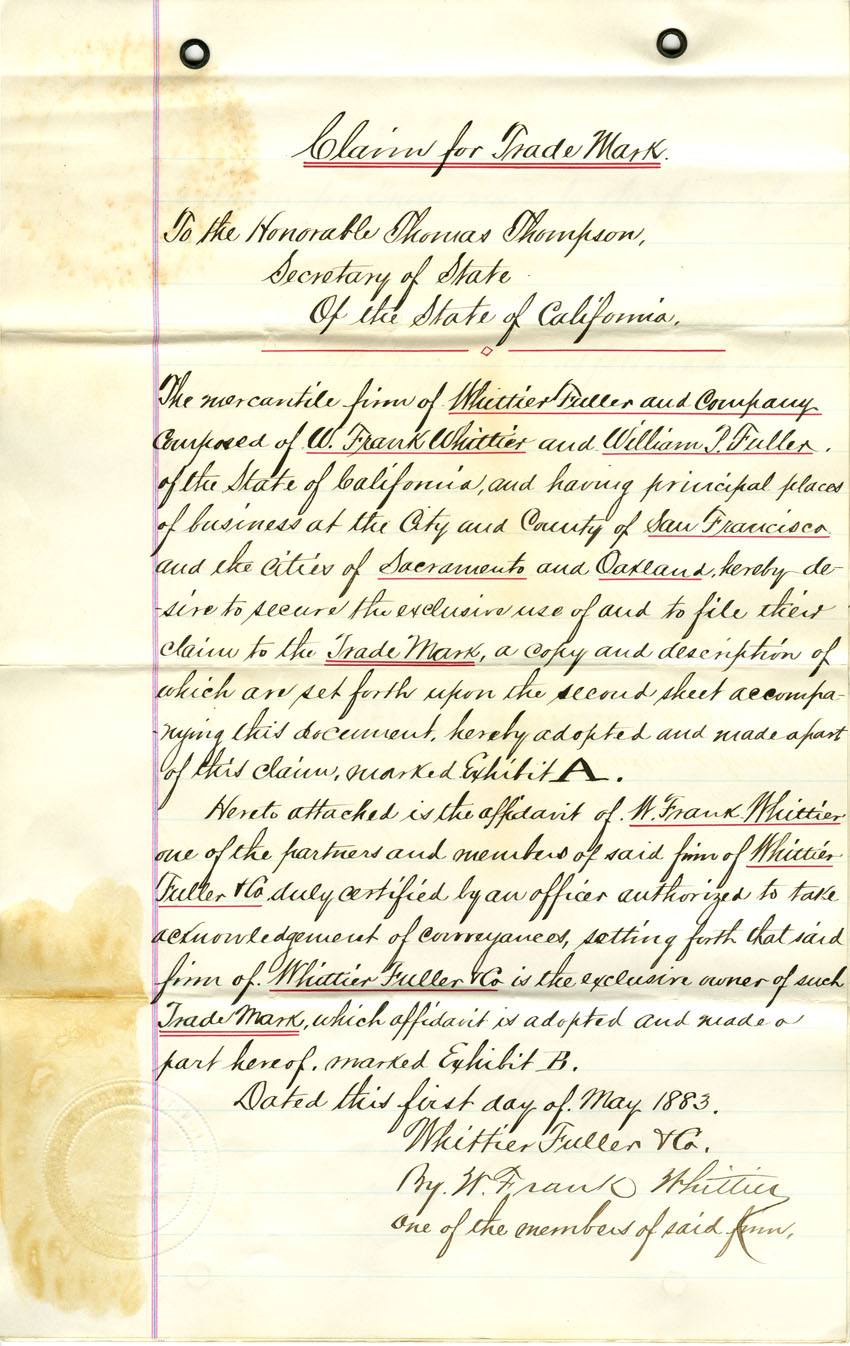 Claim for Trade Mark.
To the Honorable Thomas Thompson,
Secretary of State
Of the State of California.
The mercantile firm of Whittier Fuller and Company
Composed of W. Frank Whittier and William P. Fuller.
of the State of California, and having principal places
of business at the City and County of San Francisco
and the cities of Sacramento and Oakland, hereby de-
-sire to secure the exclusive use of and to file their
claim to the Trade Mark, a copy and description of
which are set forth upon the second sheet accompa-
-nying this document, hereby adopted and made a part
of this claim, marked Exhibit A.
Hereto attached is the affidavit of W. Frank Whittier
one of the partners and members of said firm of Whittier
Fuller & Co duly certified by an officer authorized to take
acknowledgement of conveyances, setting forth that said
firm of. Whittier Fuller & Co is the exclusive owner of such
Trade Mark, which affidavit is adopted and made a
part hereof. marked Exhibit B.
Dated this first day of. May 1883.
Whittier Fuller & Co.
By. W. Frank Whittier
One of the members of said firm.